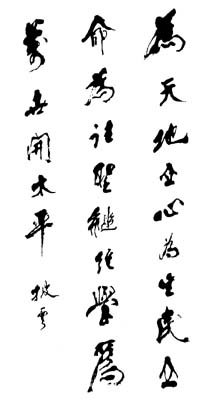 為天地立心為生民立
命為往聖繼絕學為
萬世開太平
披雲